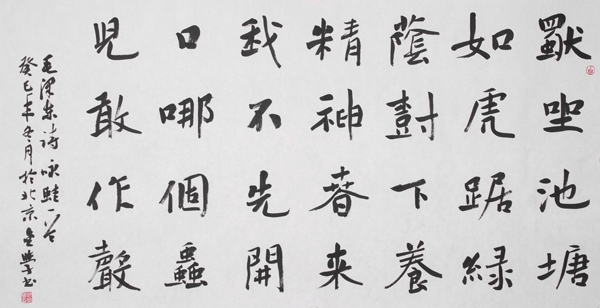 獨坐池塘
如虎踞綠
蔭尌下養
精神春来
我不先開
口哪個蟲
兒敢作聲
毛澤东诗咏蛙一首
癸巳年冬月於北京